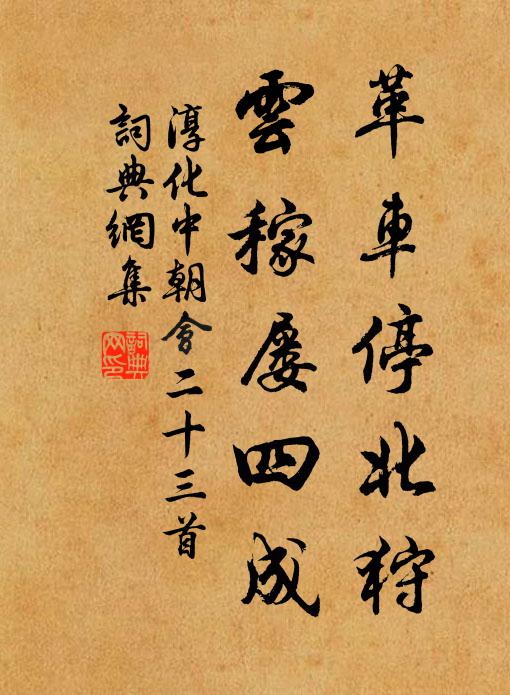 革車停北狩
雲稼屡四成
淳化中朝會二十三首
詞典網集
詞典網印